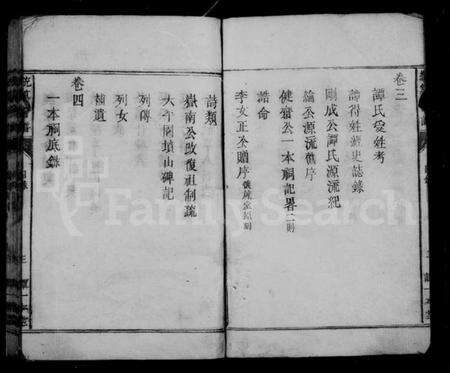 卷三
譚氏受姓考
譚得姓經史誌錄
剛成公譚氏源流紀
綸公源流舊序
健齋公一本祠記畧二則
誥命
李文正公贈序
詩類
嶽南公改復祖制疏
大平閣墳山碑記
列傳
列女
補遺
卷四
一本祠底錄
FamilySearch